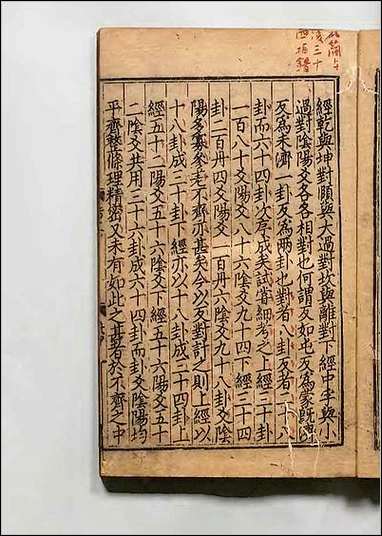 經乾與坤對頤與大過對坎與離對下經中孚與小
過對陰陽爻各各相對也何謂反如屯反為蒙既濟
反為未濟一卦反為兩卦也對者八卦反者二十八
卦而六十四卦次序成矣試嘗細考之上經三十卦
一百八十爻陽爻八十六陰爻九十四下經三十四
卦二百四爻陽爻一百六陰爻九十八卦爻陰
陽多寡參差不齊亦甚矣今以反對計之則上經以
十八卦成三十卦下經亦以十八卦成三十四卦上
經五十二陽爻五十六陰爻下經五十六陽爻五十
二陰爻共用三十六卦成六十四卦而卦爻陰陽均
平齊整條理精密又未有如此之甚者於不齊之中